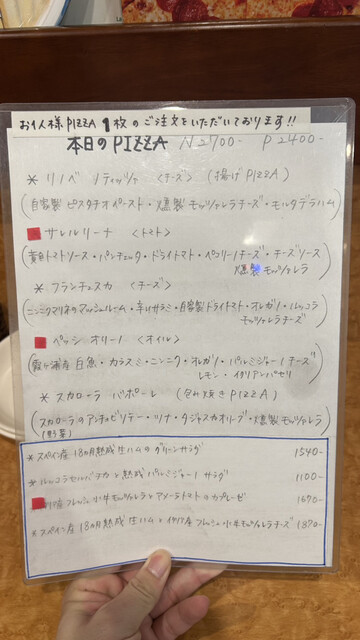 お1人様 PIZZA 1枚のご注文をいただいております!!
本日のPIZZA N2700- P2400-
* リノベ リティッツァ <チーズ> (揚げPIZZA)
(自家製ピスタチオペースト・燻製モッツァレラチーズ・モルタデラハム)
サレルリーナ <トマト>
(黄色トマトソース・パンチェッタ・ドライトマト・ペコリーノチーズ・チーズソース
燻製モッツァレラ)
* フランチェスカ <チーズ>
(ニンニクマリネのマッシュルーム・辛いサラミ・自家製ドライトマト・オレガノ・ルッコラ
モッツァレラチーズ)
ペッシ オリーノ <オイル>
(霞ヶ浦産白魚・カラスミ・ニンニク・オレガノ・パルミジャーノチーズ
レモン・イタリアンパセリ)
* スカローラ バポーレ (包み焼きPIZZA)
(スカローラのアンチョビソテー・ツナ・タジャスカオリーブ・燻製モッツァレラ)
(野菜)
* スペイン産18ヵ月熟成生ハムのグリーンサラダ 1540-
* ルッコラセルバチカと熟成パルミジャーノサラダ 1100-
産フレッシュ小牛モッツァレラとアメーラトマトのカプレーゼ 1670-
* スペイン産18ヵ月熟成生ハムとイタリア産フレッシュ小牛モッツァレラチーズ 1870-